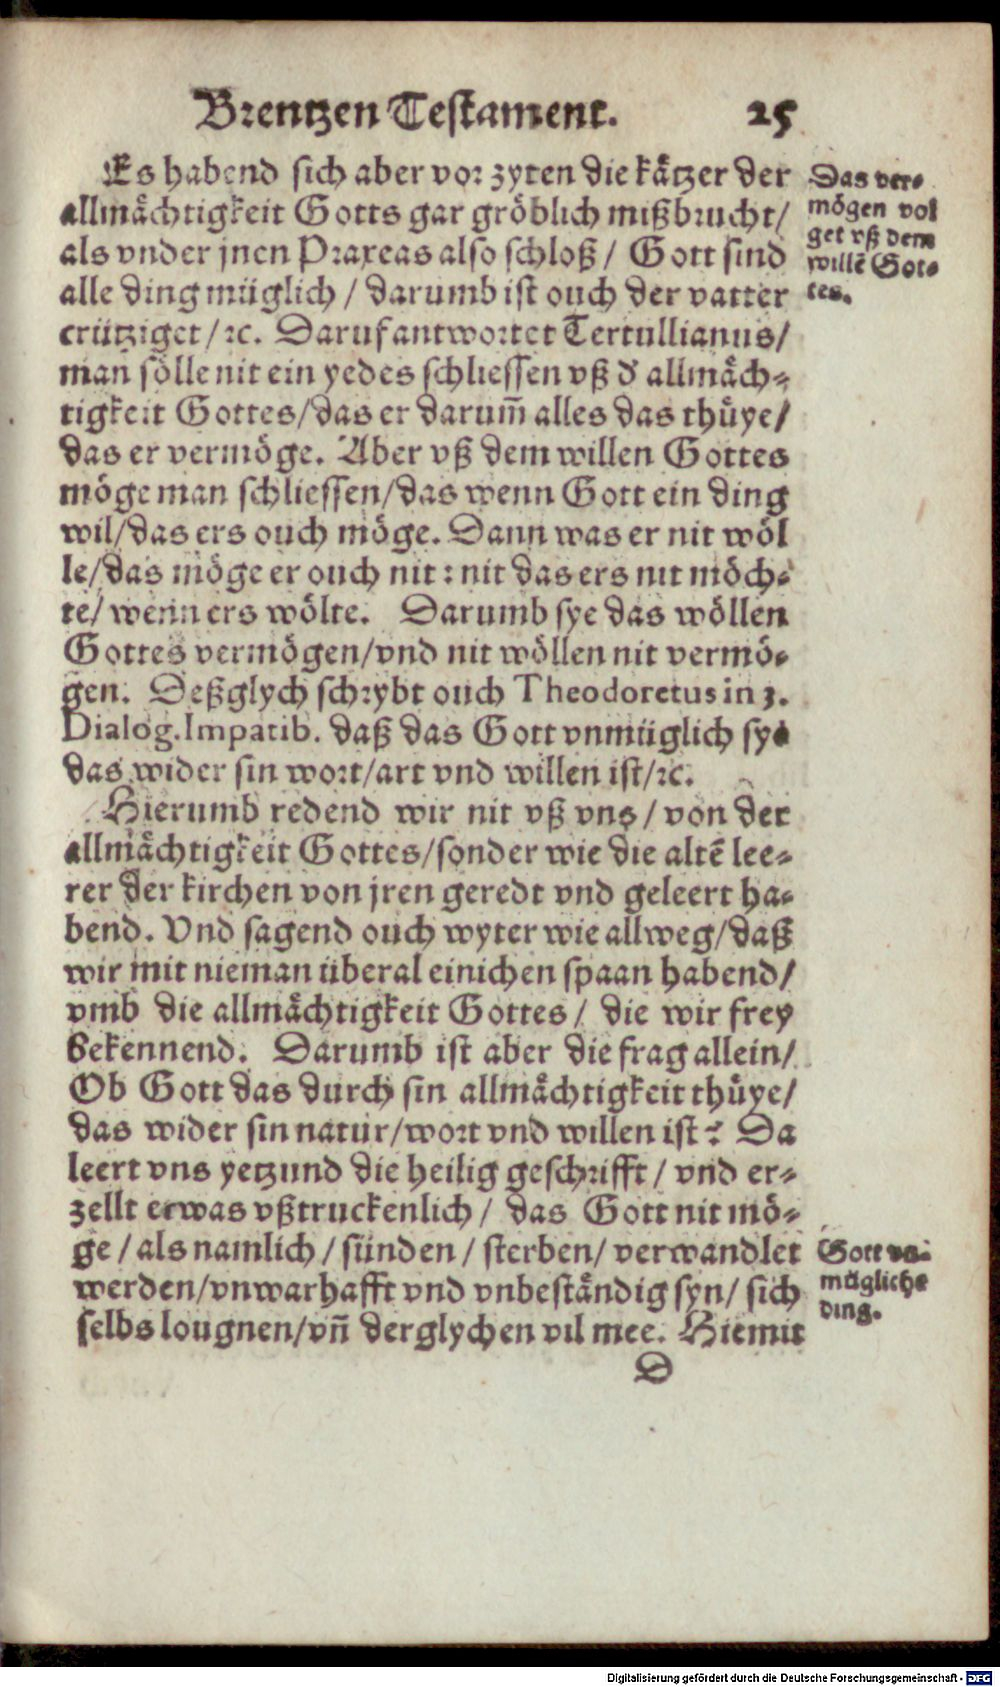 Brentzen Testament. 25
Es habend sich aber vor zyten die kätzer der
allmächtigkeit Gotts gar gröblich mißbrucht/
als vnder jnen Praxeas also schloß / Gott sind
alle ding müglich / darumb ist ouch der vatter
crütziget /ꝛc. Daruf antwortet Tertullianus/
man sölle nit ein yedes schliessen vß đ allmäch⸗
tigkeit Gottes/das er darum̄ alles das thüye/
das er vermöge. Aber vß dem willen Gottes
möge man schliessen/das wenn Gott ein ding
wil/das ers ouch möge. Dann was er nit wöl
le/das möge er ouch nit : nit das ers nit möch⸗
te/ wenn ers wölte. Darumb sye das wöllen
Gottes vermögen/vnd nit wöllen nit vermö⸗
gen. Deßglych schrybt ouch Theodoretus in 3.
Dialog.Impatib. daß das Gott vnmüglich sye
das wider sin wort/art vnd willen ist/ꝛc.
Hierumb redend wir nit vß vns / von der
allmächtigkeit Gottes/sonder wie die altē lee⸗
rer der kirchen von jren geredt vnd geleert ha⸗
bend. Vnd sagend ouch wyter wie allweg/daß
wir mit nieman überal einichen spaan habend/
vmb die allmächtigkeit Gottes / die wir frey
bekennend. Darumb ist aber die frag allein/
Ob Gott das durch sin allmächtigkeit thüye/
das wider sin natur/wort vnd willen ist? Da
leert vns yetzund die heilig geschrifft / vnd er⸗
zellt etwas vßtruckenlich / das Gott nit mö⸗
ge / als namlich / sünden / sterben/ verwandlet
werden/vnwarhafft vnd vnbeständig syn/ sich
selbs lougnen/vn̄ derglychen vil mee. Hiemit
D
Das ver⸗
mögen vol
get vß dem
willē Got⸗
tes.
Gott vn⸗
mügliche
ding.
Digitalisierung gefördert durch die Deutsche Forschungsgemeinschaft - DFG